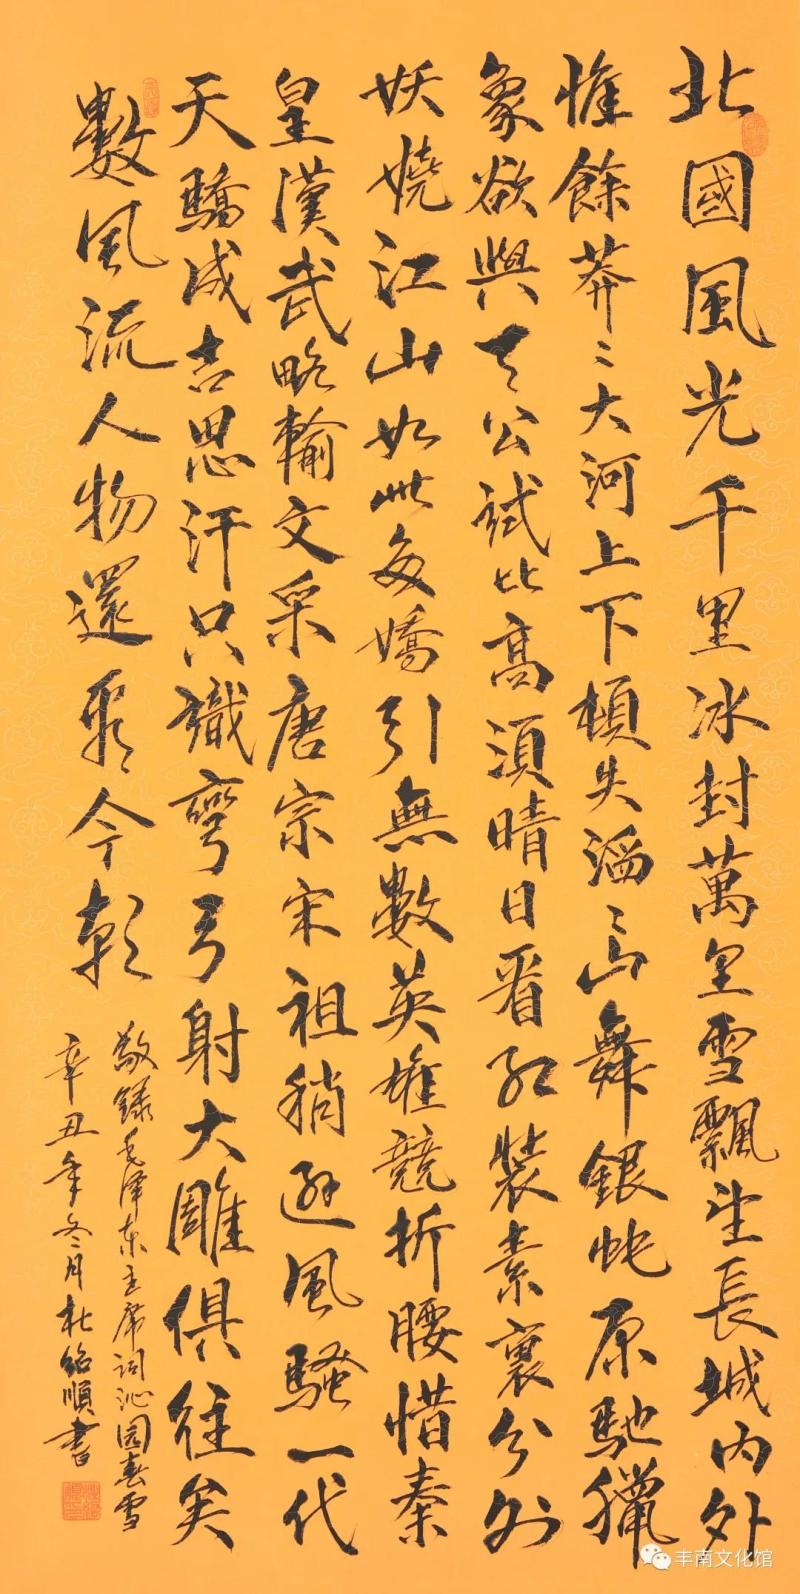 北國風光千里冰封萬里雪飄望長城內外
惟餘莽〻大河上下頓失滔〻山舞銀蛇原馳獵
象欲與天公試比高須晴日看紅裝素裹分外
妖嬈江山如此多嬌引無數英雄競折腰惜秦
皇漢武略輸文采唐宗宋祖稍遜風騷一代
天驕成吉思汗只識彎弓射大雕俱往矣
數風流人物還看今朝
敬錄毛泽东主席词沁园春雪
辛丑年冬月杜紹順書
丰南文化馆